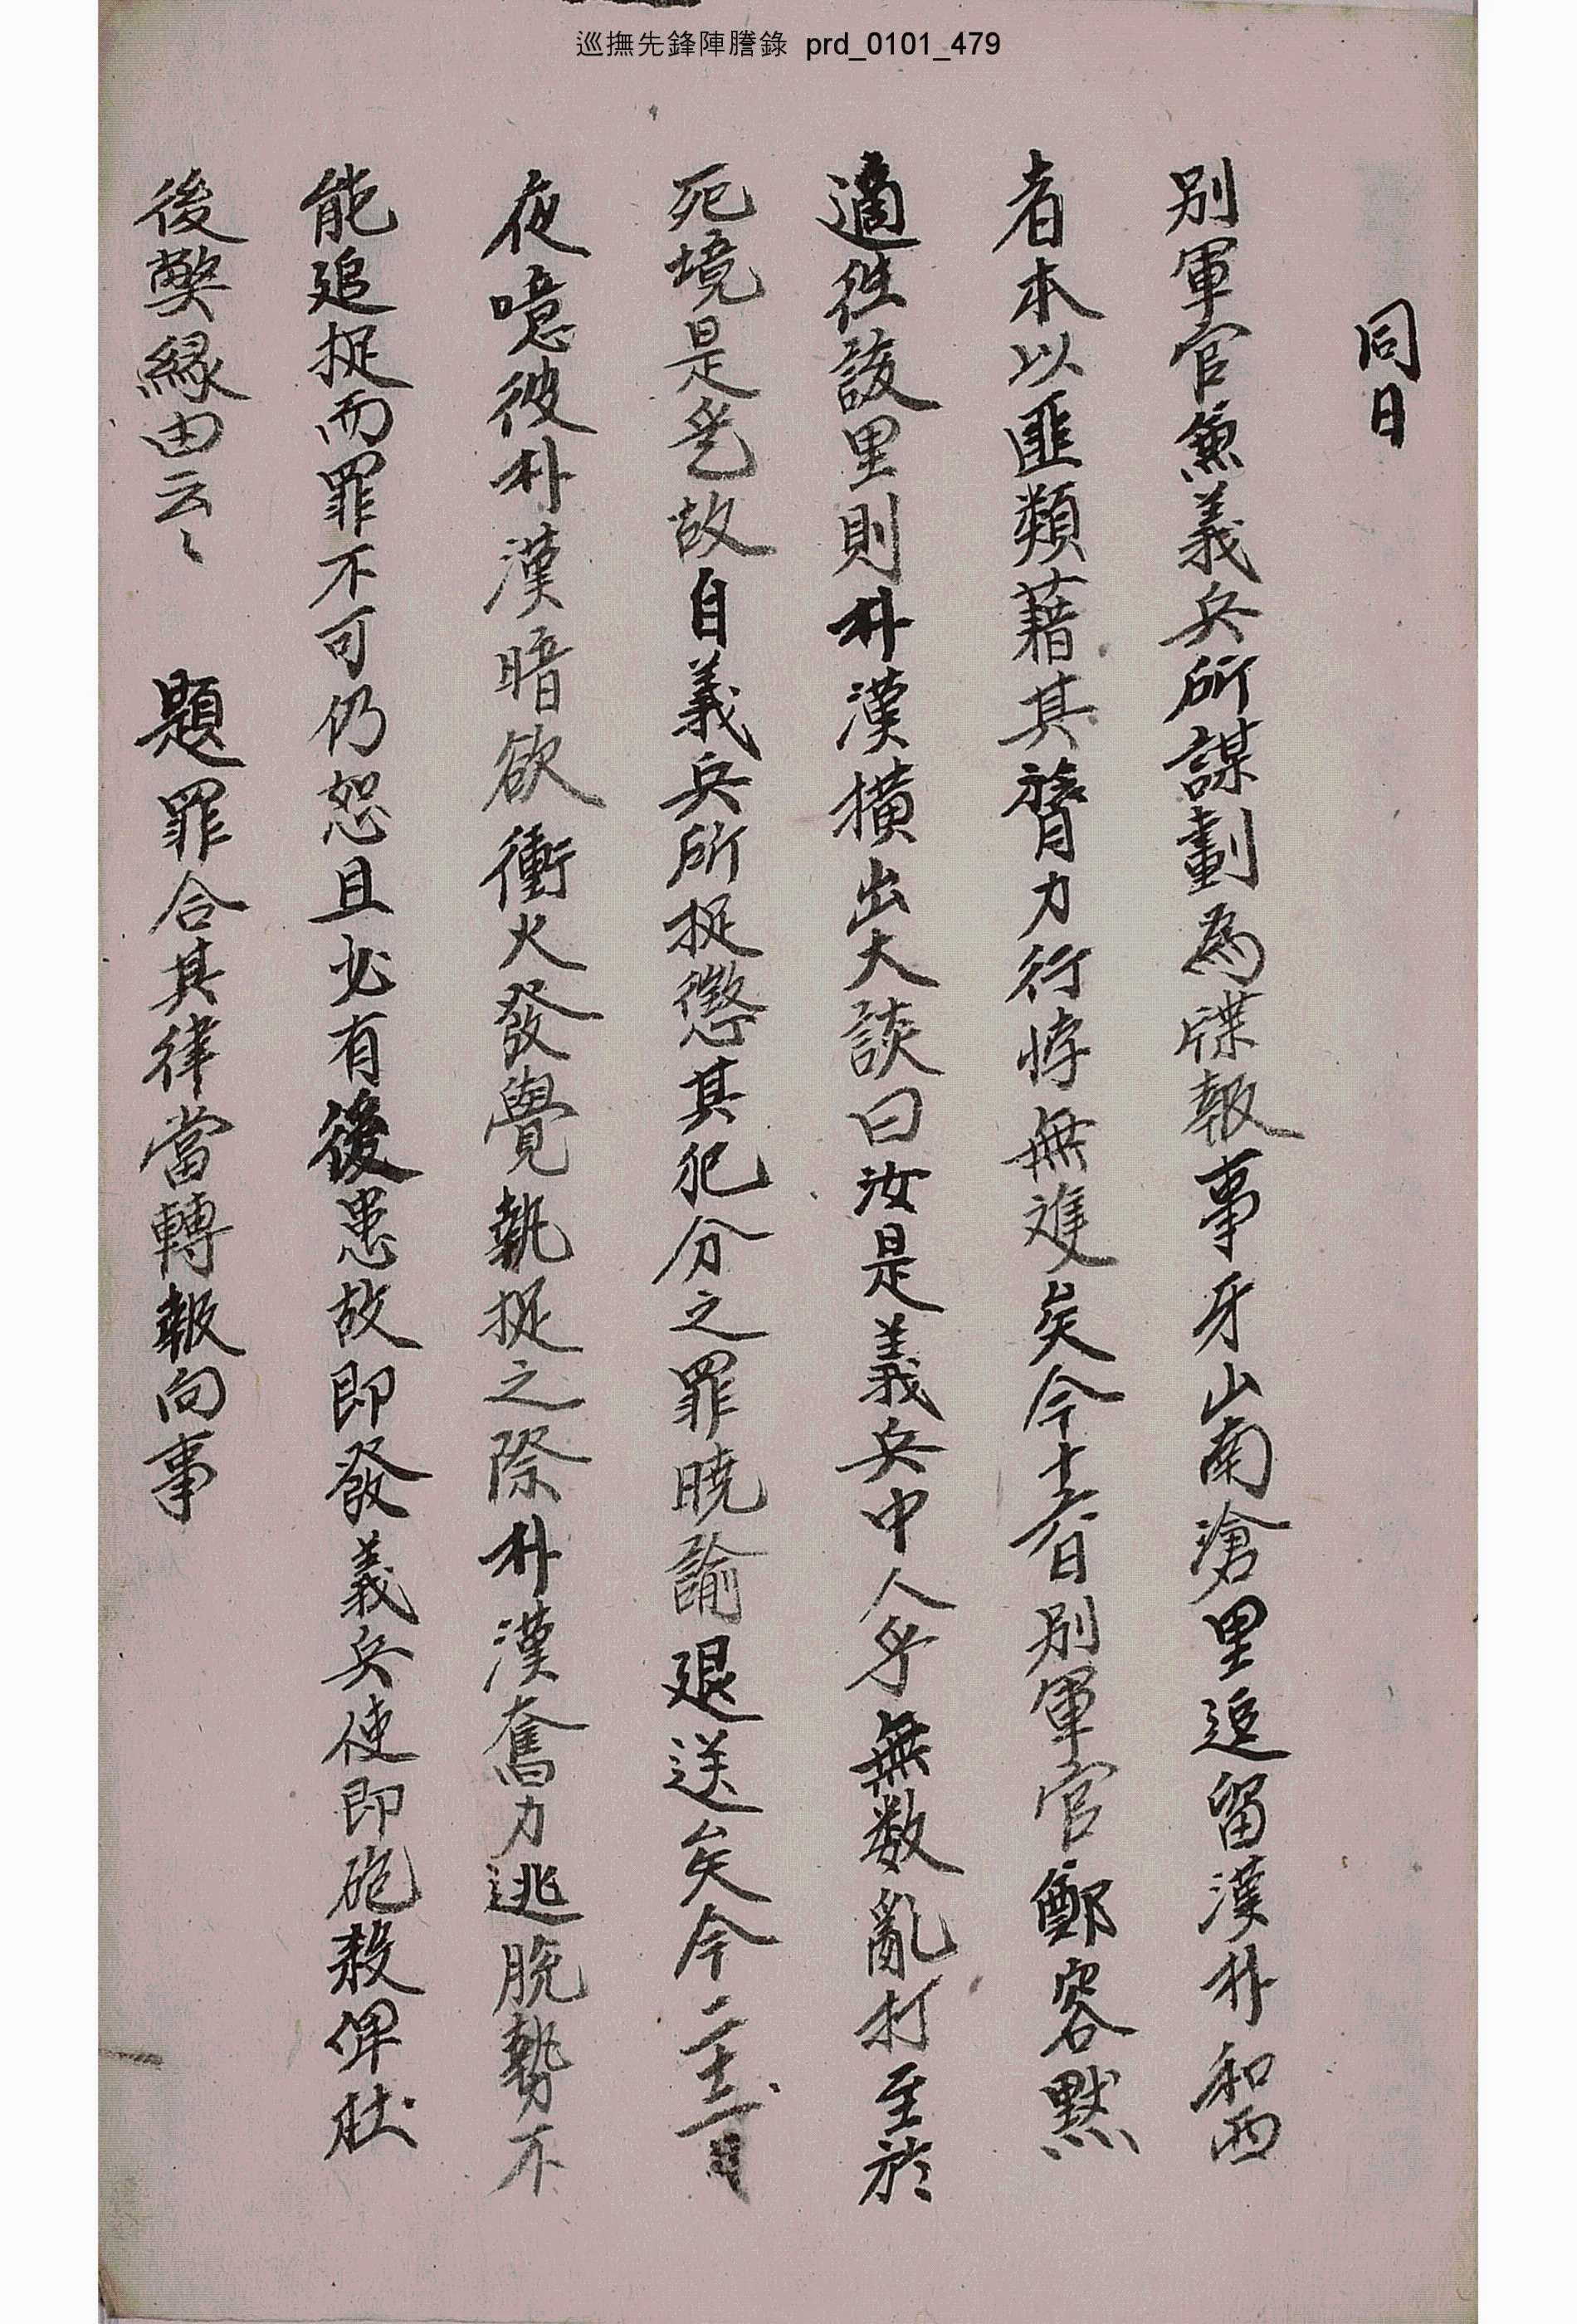 巡撫先鋒陣謄錄 prd_0101_479
同日
別軍官兼義兵所謀劃爲牒報事牙山南滄里追留漢朴和西
者本以匪類藉其膂力行悖無雙矣今十六日別軍官鄭容默
適往該里則朴漢橫出大談曰汝是義兵中人乎無数亂打至於
死境是乞故自義兵所捉懲其犯分之罪曉諭退送矣今二十二日
夜噫彼朴漢暗欲衝火發覺執捉之際朴漢奮力逃脫勢不
能追捉而罪不可仍恕且必有後患故卽發義兵使卽砲殺俾杜
後弊緣由云〻 題罪合其律當轉報向事